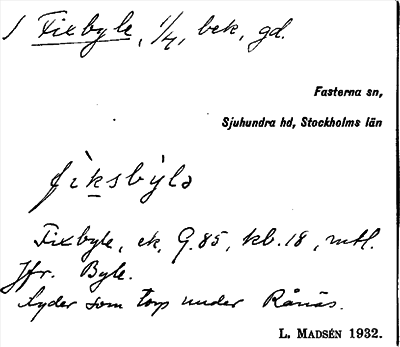 1 Fixbyle, 1/4, bek, gd.
Fasterna sn,
Sjuhundra hd, Stockholms län
fìksbỳlə
Fixbyle, ek, G. 85, kb. 18, mtl.
Jfr. Byle.
Lyder som torp under Rånäs.
L. MADSÉN 1932.